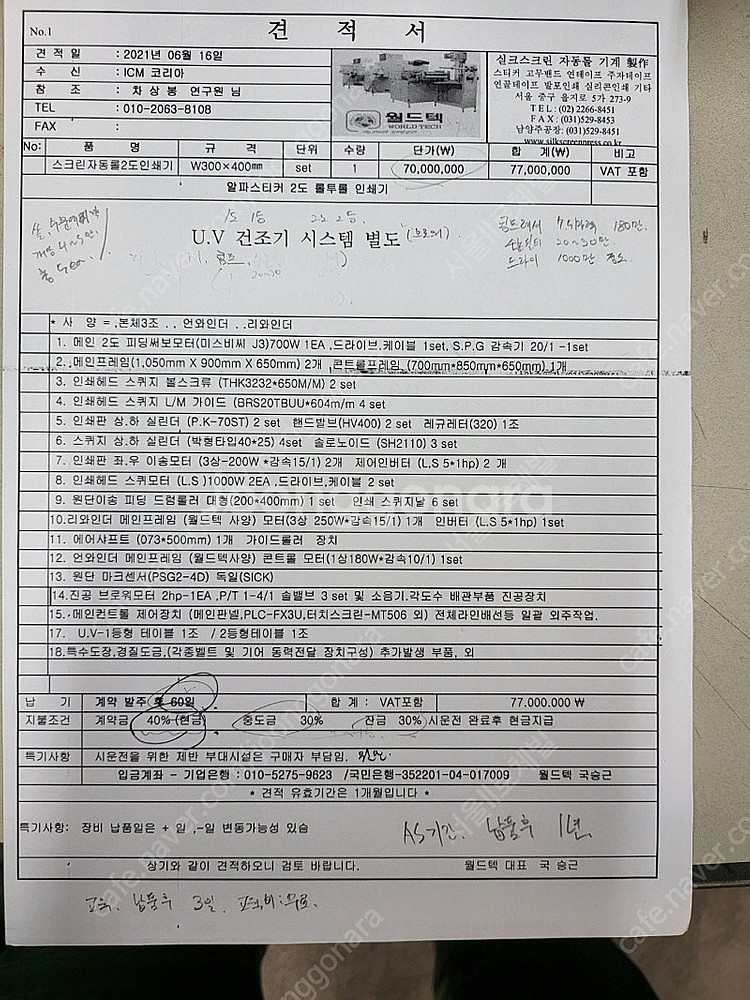 No.1
견 적 서
견 적 일 : 2021년 06월 16일
수 신 : ICM 코리아
참 조 : 차 상 봉 연구원 님
TEL : 010-2063-8108
FAX :
월드텍
WORLD TECH
실크스크린 자동롤 기계 製作
스티커 고무밴드 연테이프 주자테이프
연골테이프 발포인쇄 실리콘인쇄 기타
서울 중구 을지로 5가 273-9
TEL : (02) 2266-8451
FAX : (031)529-8453
남양주공장: (031)529-8451
www.silkscreenpress.co.kr
No: 품 명 규 격 단위 수량 단가(₩) 합 계(₩) 비고
스크린자동롤2도인쇄기 W300×400mm set 1 70,000,000 77,000,000 VAT 포함
알파스티커 2도 롤투롤 인쇄기
1도 1등 2도 2등
U.V 건조기 시스템 별도
콤프레셔 7.5마력 180만.
20~30만.
드라이 1000만 정도.
* 사 양 = ,본체3조 . , 언와인더 . .리와인더
1. 메인 2도 피딩써보모터(미스비씨 J3)700W 1EA ,드라이브.케이블 1set, S.P.G 감속기 20/1 -1set
2. ,메인프레임(1,050mm X 900mm X 650mm) 2개 콘트롤프레임 (700mm*850mm*650mm) 1개
3. 인쇄헤드 스퀴지 볼스크류 (THK3232*650M/M) 2 set
4. 인쇄헤드 스퀴지 L/M 가이드 (BRS20TBUU*604m/m 4 set
5. 인쇄판 상.하 실린더 (P.K-70ST) 2 set 핸드발브(HV400) 2 set 레규레터(320) 1조
6. 스퀴지 상.하 실린더 (박형타입40*25) 4set 솔로노이드 (SH2110) 3 set
7. 인쇄판 좌.우 이송모터 (3상-200W *감속15/1) 2개 제어인버터 (L,S 5*1hp) 2 개
8. 인쇄헤드 스퀴모터 (L.S )1000W 2EA ,드라이브,케이블 2 set
9. 원단이송 피딩 드럼롤러 대형(200*400mm) 1 set 인쇄 스퀴지날 6 set
10.리와인더 메인프레임 (월드텍 사양) 모터(3상 250W*감속15/1) 1개 인버터 (L.S 5*1hp) 1set
11. 에어샤프트 (073*500mm) 1개 가이드롤러 장치
12. 언와인더 메인프레임 (월드텍사양) 콘트롤 모터(1상180W*감속10/1) 1set
13. 원단 마크센서(PSG2-4D) 독일(SICK)
14.진공 브로워모터 2hp-1EA ,P/T 1-4/1 솔밸브 3 set 및 소음기.각도수 배관부품 진공장치
15. 메인컨트롤 제어장치 (메인판넬,PLC-FX3U,터치스크린-MT506 외) 전체라인배선등 일괄 외주작업.
17. U.V-1등형 테이블 1조 / 2등형테이블 1조
18.특수도장,경질도금,(각종벨트 및 기어 동력전달 장치구성) 추가발생 부품, 외
납 기 계약 발주 후 60일 합 계 : VAT포함 77.000.000 ₩
지불조건 계약금 40% (현금) 중도금 30% 잔금 30% 시운전 완료후 현금지급
특기사항 시운전을 위한 제반 부대시설은 구매자 부담임.
입금계좌 - 기업은행 : 010-5275-9623 /국민은행-352201-04-017009 월드텍 국승근
* 견적 유효기간은 1개월입니다 *
특기사항: 장비 납품일은 + 일 ,-일 변동가능성 있슴
AS기간. 납품후 1년
상기와 같이 견적하오니 검토 바랍니다. 월드텍 대표 국 승근
교육. 납품후 3일. 교육비:무료.